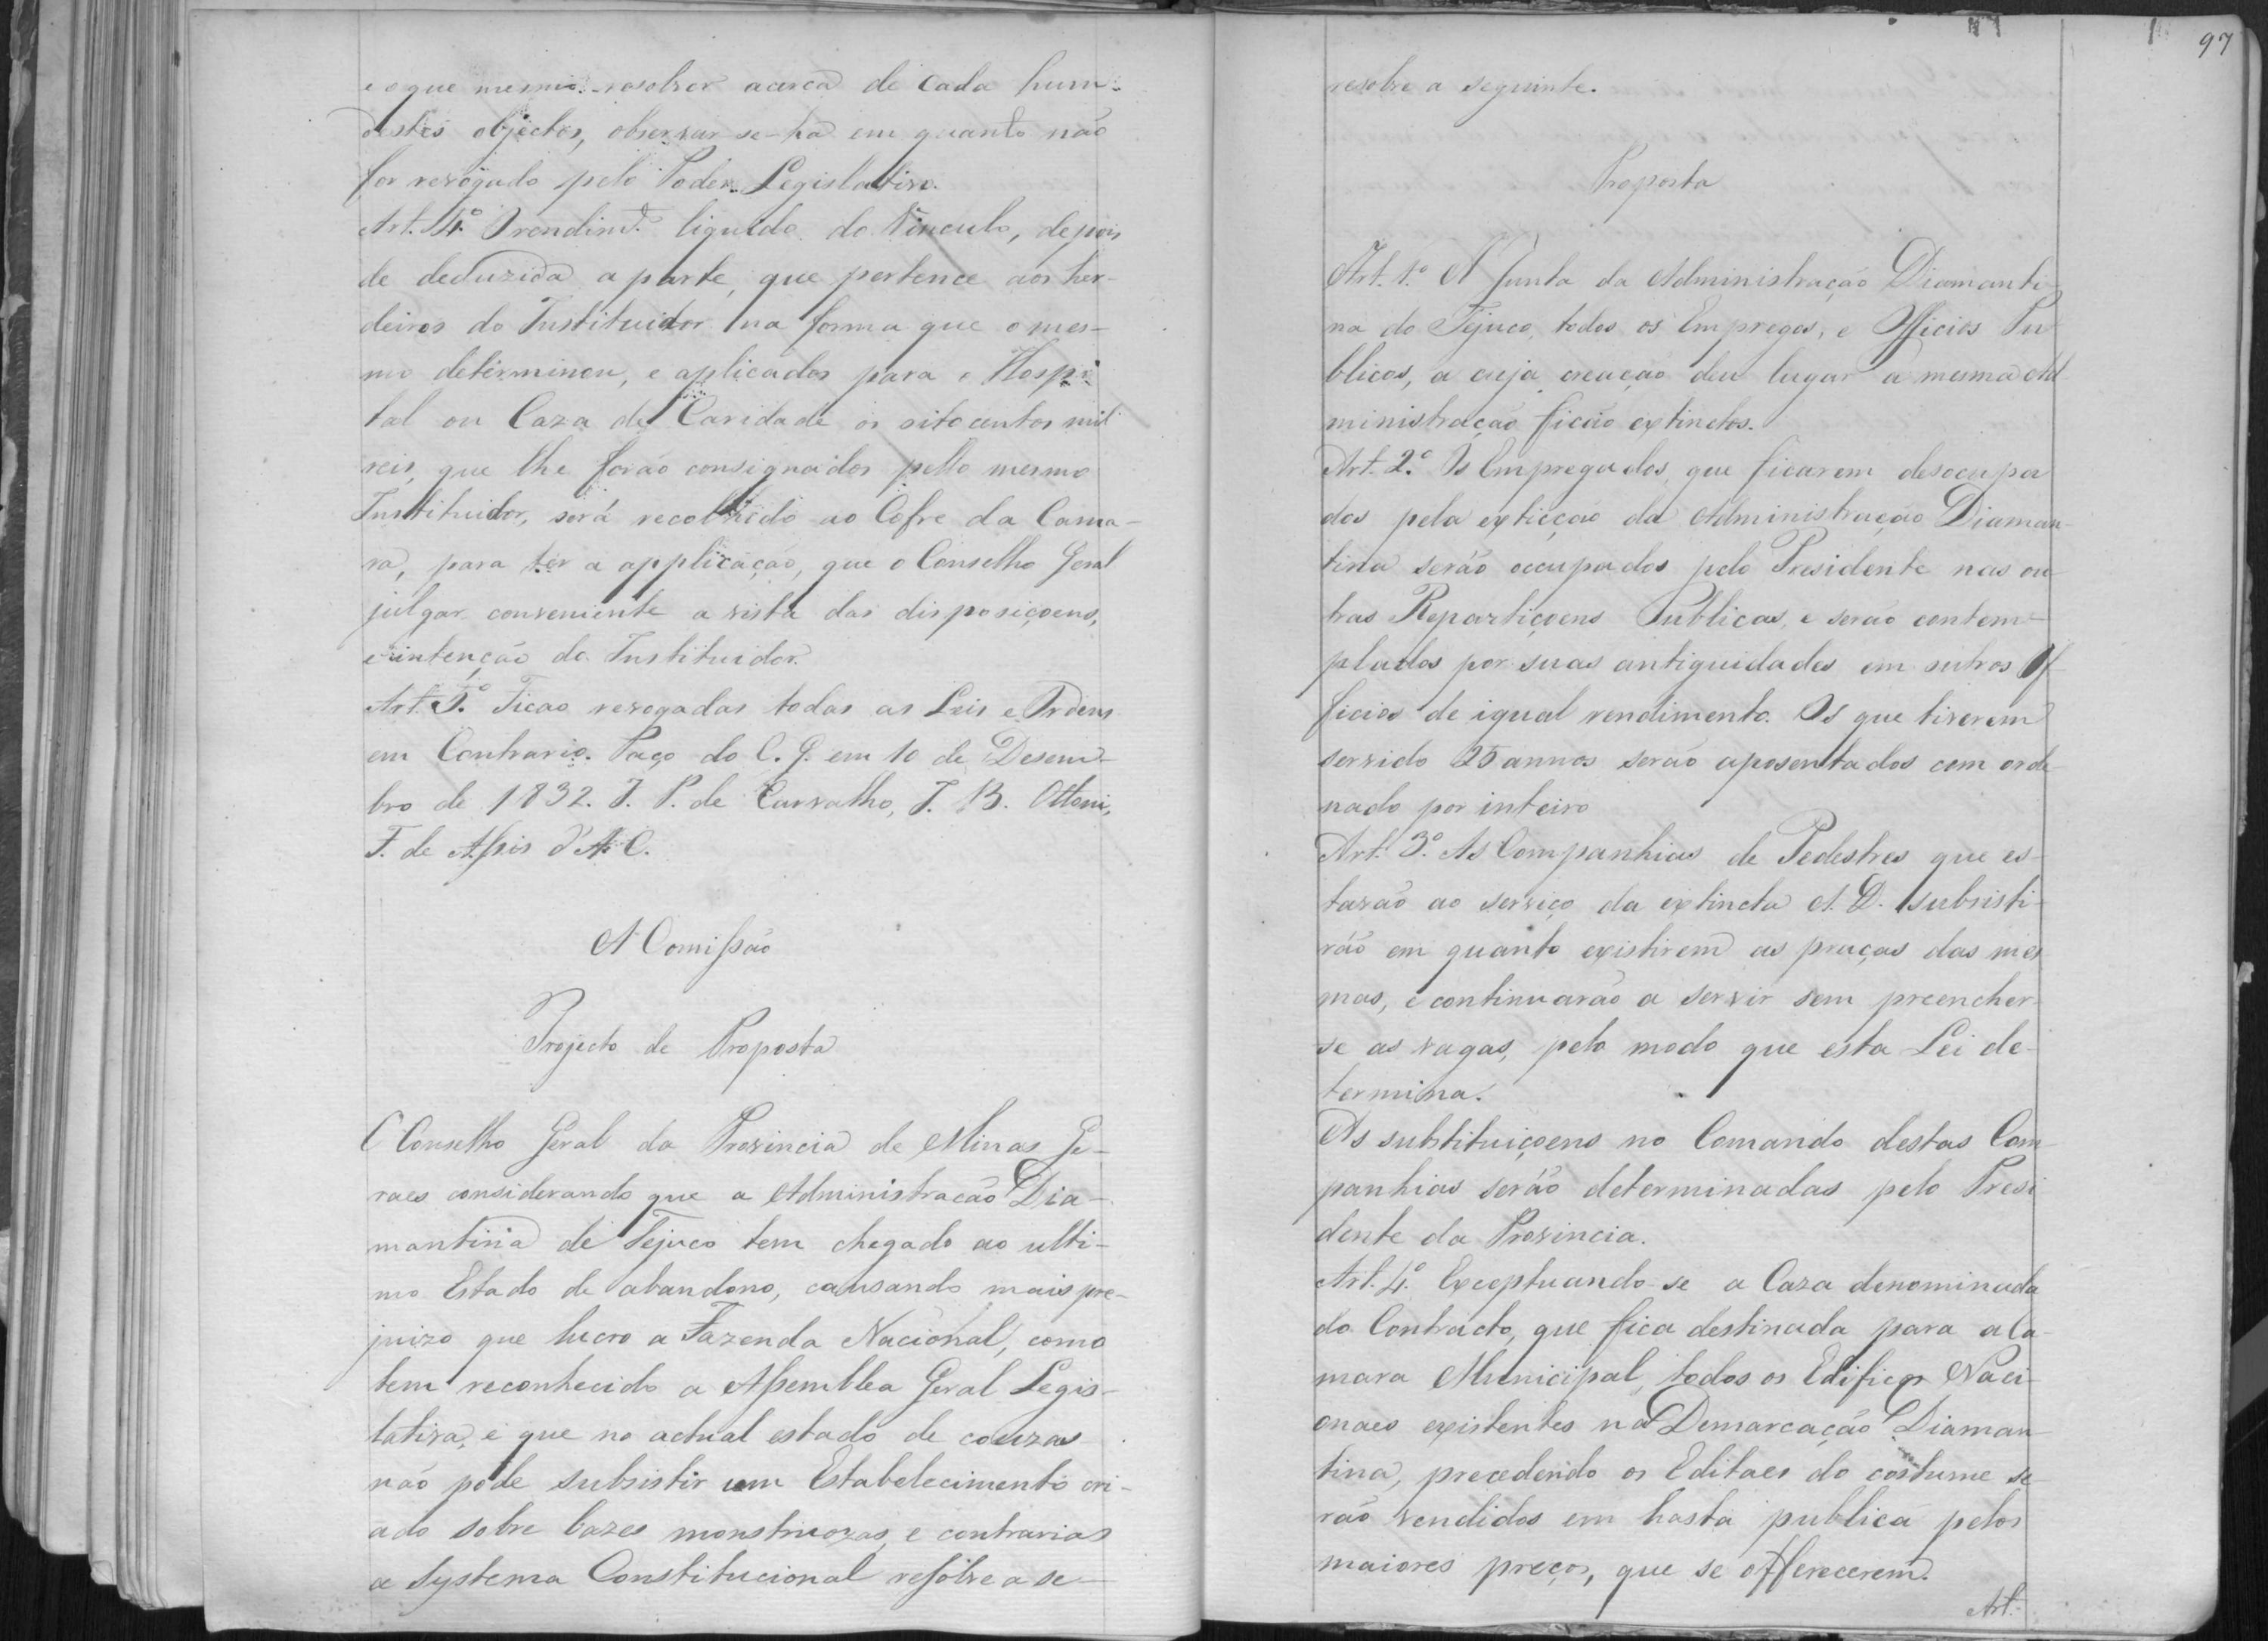 e o que mesmo resolver acerca de cada hum
destes objectos, observar se-ha em quanto não
for revogado pelo Poder Legislativo.
Art. 4º O rendimt. liquido do Vinculo, depois
de deduzida a parte, que pertence aos her-
deiros do Instituidor na forma que o mes-
mo determinou, e aplicados para o Hospi
tal ou Caza de Caridade os oitocentos mil
reis, que lhe forão consignados pello mesmo
Instituidor, será recolhido ao Cofre da Cama-
ra, para ter a applicação, que o Conselho Geral
julgar conveniente a vista das disposiçoens,
e intenção do Instituidor.
Art. 5º Ficao revogadas todas as Leis e Ordens
em Contrario. Paço do C. G. em 10 de Desem-
bro de 1832. J. P. de Carvalho, J. B. Ottoni,
F. de Assis d'A. C.
A Comissão
Projecto de Proposta
O Conselho Geral da Provincia de Minas Ge-
raes considerando que a Administracão Dia-
mantina de Tejuco tem chegado ao ulti-
mo Estado de abandono, causando mais pre-
juizo que lucro a Fazenda Nacional, como
tem reconhecido a Assemblea Geral Legis-
lativa, e que no actual estado de couzas
não póde subsistir um Estabelecimento cri-
ado sobre bazes monstruozas, e contrarias
a systema Constitucional resolve a se-
97
resolve a seguinte.
Proposta
Art. 1.º A Junta da Administração Diamanti
na do Tejuco, todos os Empregos, e Officios Pu
blicos, a cuja creação deu lugar a mesma Ad
ministração ficão extinctos.
Art. 2.º Os Empregados, que ficarem desocupa
dos pela exticção da Administração Diaman-
tina serão occupados pelo Presidente nas ou
tras Repartiçoens Publicas, e serão contem-
plados por suas antiguidades em outros Of
ficios de igual rendimento. Os que tiverem
servido 25 annos serão aposentados com orde
nado por inteiro
Art. 3º. As Companhias de Pedestres que es-
tavão ao serviço da extincta A. D. subsisti-
rão em quanto existirem as praças das mes
mas, e continuarão a servir sem preencher-
se as vagas, pelo modo que esta Lei de-
termina.
As substituiçoens no Comando destas Com
panhias serão determinadas pelo Presi
dente da Provincia.
Art. 4º. Exceptuando-se a Caza denominada
do Contracto, que fica destinada para a Ca-
mara Municipal, todos os Edificos Naci-
onaes existentes na Demarcação Diaman-
tina, precedendo os Editaes do costume se-
rão vendidos em hasta publica pelos
maiores preços, que se offerecerem.
Art.